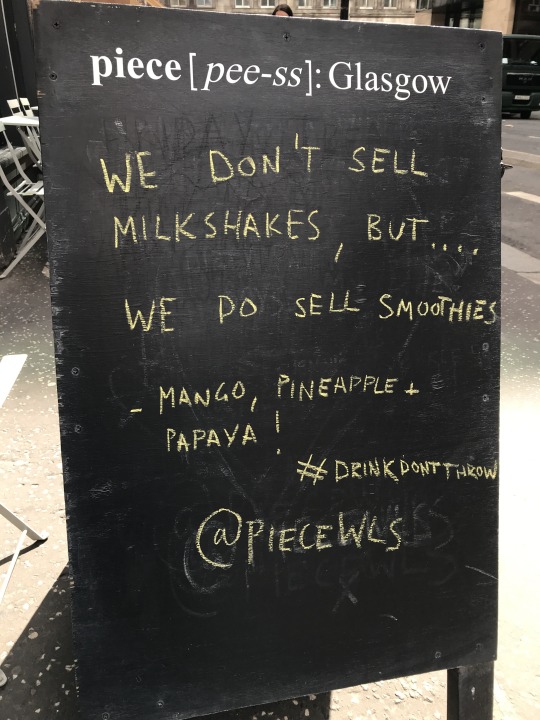 piece [pee-ss]: Glasgow
WE DON'T SELL
MILKSHAKES, BUT....
WE DO SELL SMOOTHIES
- MANGO, PINEAPPLE +
PAPAYA!
#DRINKDONTTHROW
@PIECEWLS